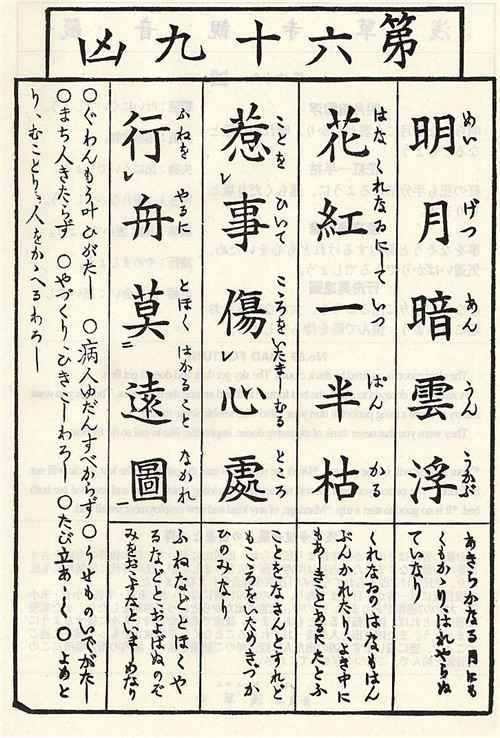 第六十九凶
めい げつ あん うん うかぶ
明月暗雲浮
あきらかなる月にも
くもかゝりはれやらぬ
ていなり
はな くれなゐにしていつ ぱん かる
花紅一半枯
くれなゐのはなもはん
ぶんかれたりよき中に
もあしきことあるたとふ
ことを ひいて こゝろをいたましむる ところ
惹レ事傷レ心處
ことをなさんとすれど
もこゝろをいためきづか
ひのみた
ふねを やるに とほく はかること なかれ
行レ舟莫二遠圖一
ふねなどとほくや
るなどおよばぬのぞ
みをおこすなといましめなり
○ぐわんもう叶ひがたし ○病人ゆだんすべからず ○うせものいでがたし
○まち人きたらず ○やづくりひきこしわろし ○たび立あしく ○よめと
り、むことり、人をかゝへるわろし